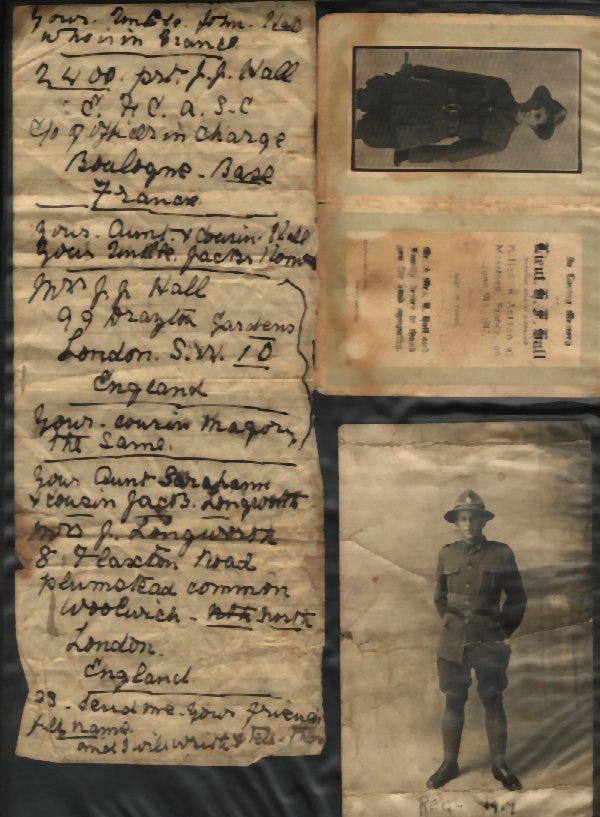 Yours. Uncle. John. Hall
who is in France
2400. prt. J.J. Hall
E. F. C. A. S. C
c/o officer in charge
Boulogne - Base
France
Yours. Aunt. & cousin. Hall
Your Uncle. Jacks
Mrs J. J. Hall
99 Drayton Gardens
London. S.W. 10
England
Your - cousin
the same.
Your Aunt Sarahann
& cousin Jacob. Longworth
Mrs J. Longworth
8 Flaxton Road
plumstead common
Woolwich - North
London.
England
send me. Your friends
full name
and I will write & tell
In Loving Memory
Lieut. H. F. Hall
Killed in Action at
Messines, France, on
Mr. & Mrs. H. Hall and
Family desire to thank
you for kind sympathy.